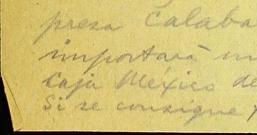 presa Calaba
importará un
caja México de
Si se consigue